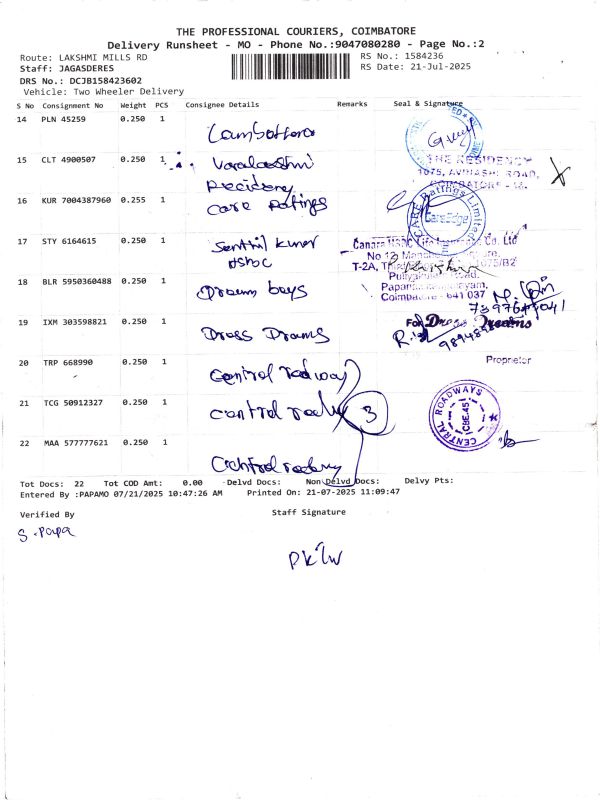 THE PROFESSIONAL COURIERS, COIMBATORE
Delivery Runsheet - MO - Phone No.:9047080280 - Page No.:2
Route: LAKSHMI MILLS RD
RS No.: 1584236
Staff: JAGASDERES
RS Date: 21-Jul-2025
DRS No.: DCJB158423602
Vehicle: Two Wheeler Delivery
S No Consignment No Weight PCS Consignee Details Remarks Seal & Signature
14 PLN 45259 0.250 1
15 CLT 4900507 0.250 1 Varalakshmi
THE RESIDENCY
1075, AVINASHI ROAD,
COIMBATORE - 18.
16 KUR 7004387960 0.255 1 care Ratings
CARE Ratings Limited
CareEdge
17 STY 6164615 0.250 1 Senthil kumar
HSBC
Canara HSBC Life Insurance Co. Ltd
T-2A,
1075/B2
Coimbatore - 641 037
18 BLR 5950360488 0.250 1 Dream boys
19 IXM 303598821 0.250 1 Dress Dreams
For Dress Dreams
Proprietor
20 TRP 668990 0.250 1 Central roadway
21 TCG 50912327 0.250 1 Central roadway 3
CENTRAL ROADWAYS
CBE.45
22 MAA 577777621 0.250 1 Central roadway
Tot Docs: 22 Tot COD Amt: 0.00 Delvd Docs: Non Delvd Docs: Delvy Pts:
Entered By :PAPAMO 07/21/2025 10:47:26 AM Printed On: 21-07-2025 11:09:47
Verified By Staff Signature
S. Papa